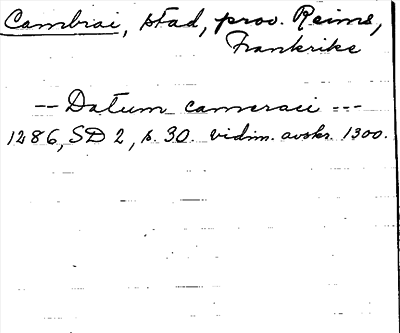 Cambrai, stad, prov. Reims,
Frankrike
-- Datum cameraci ---
1286, SD 2, s. 30. vidim. avskr. 1300.